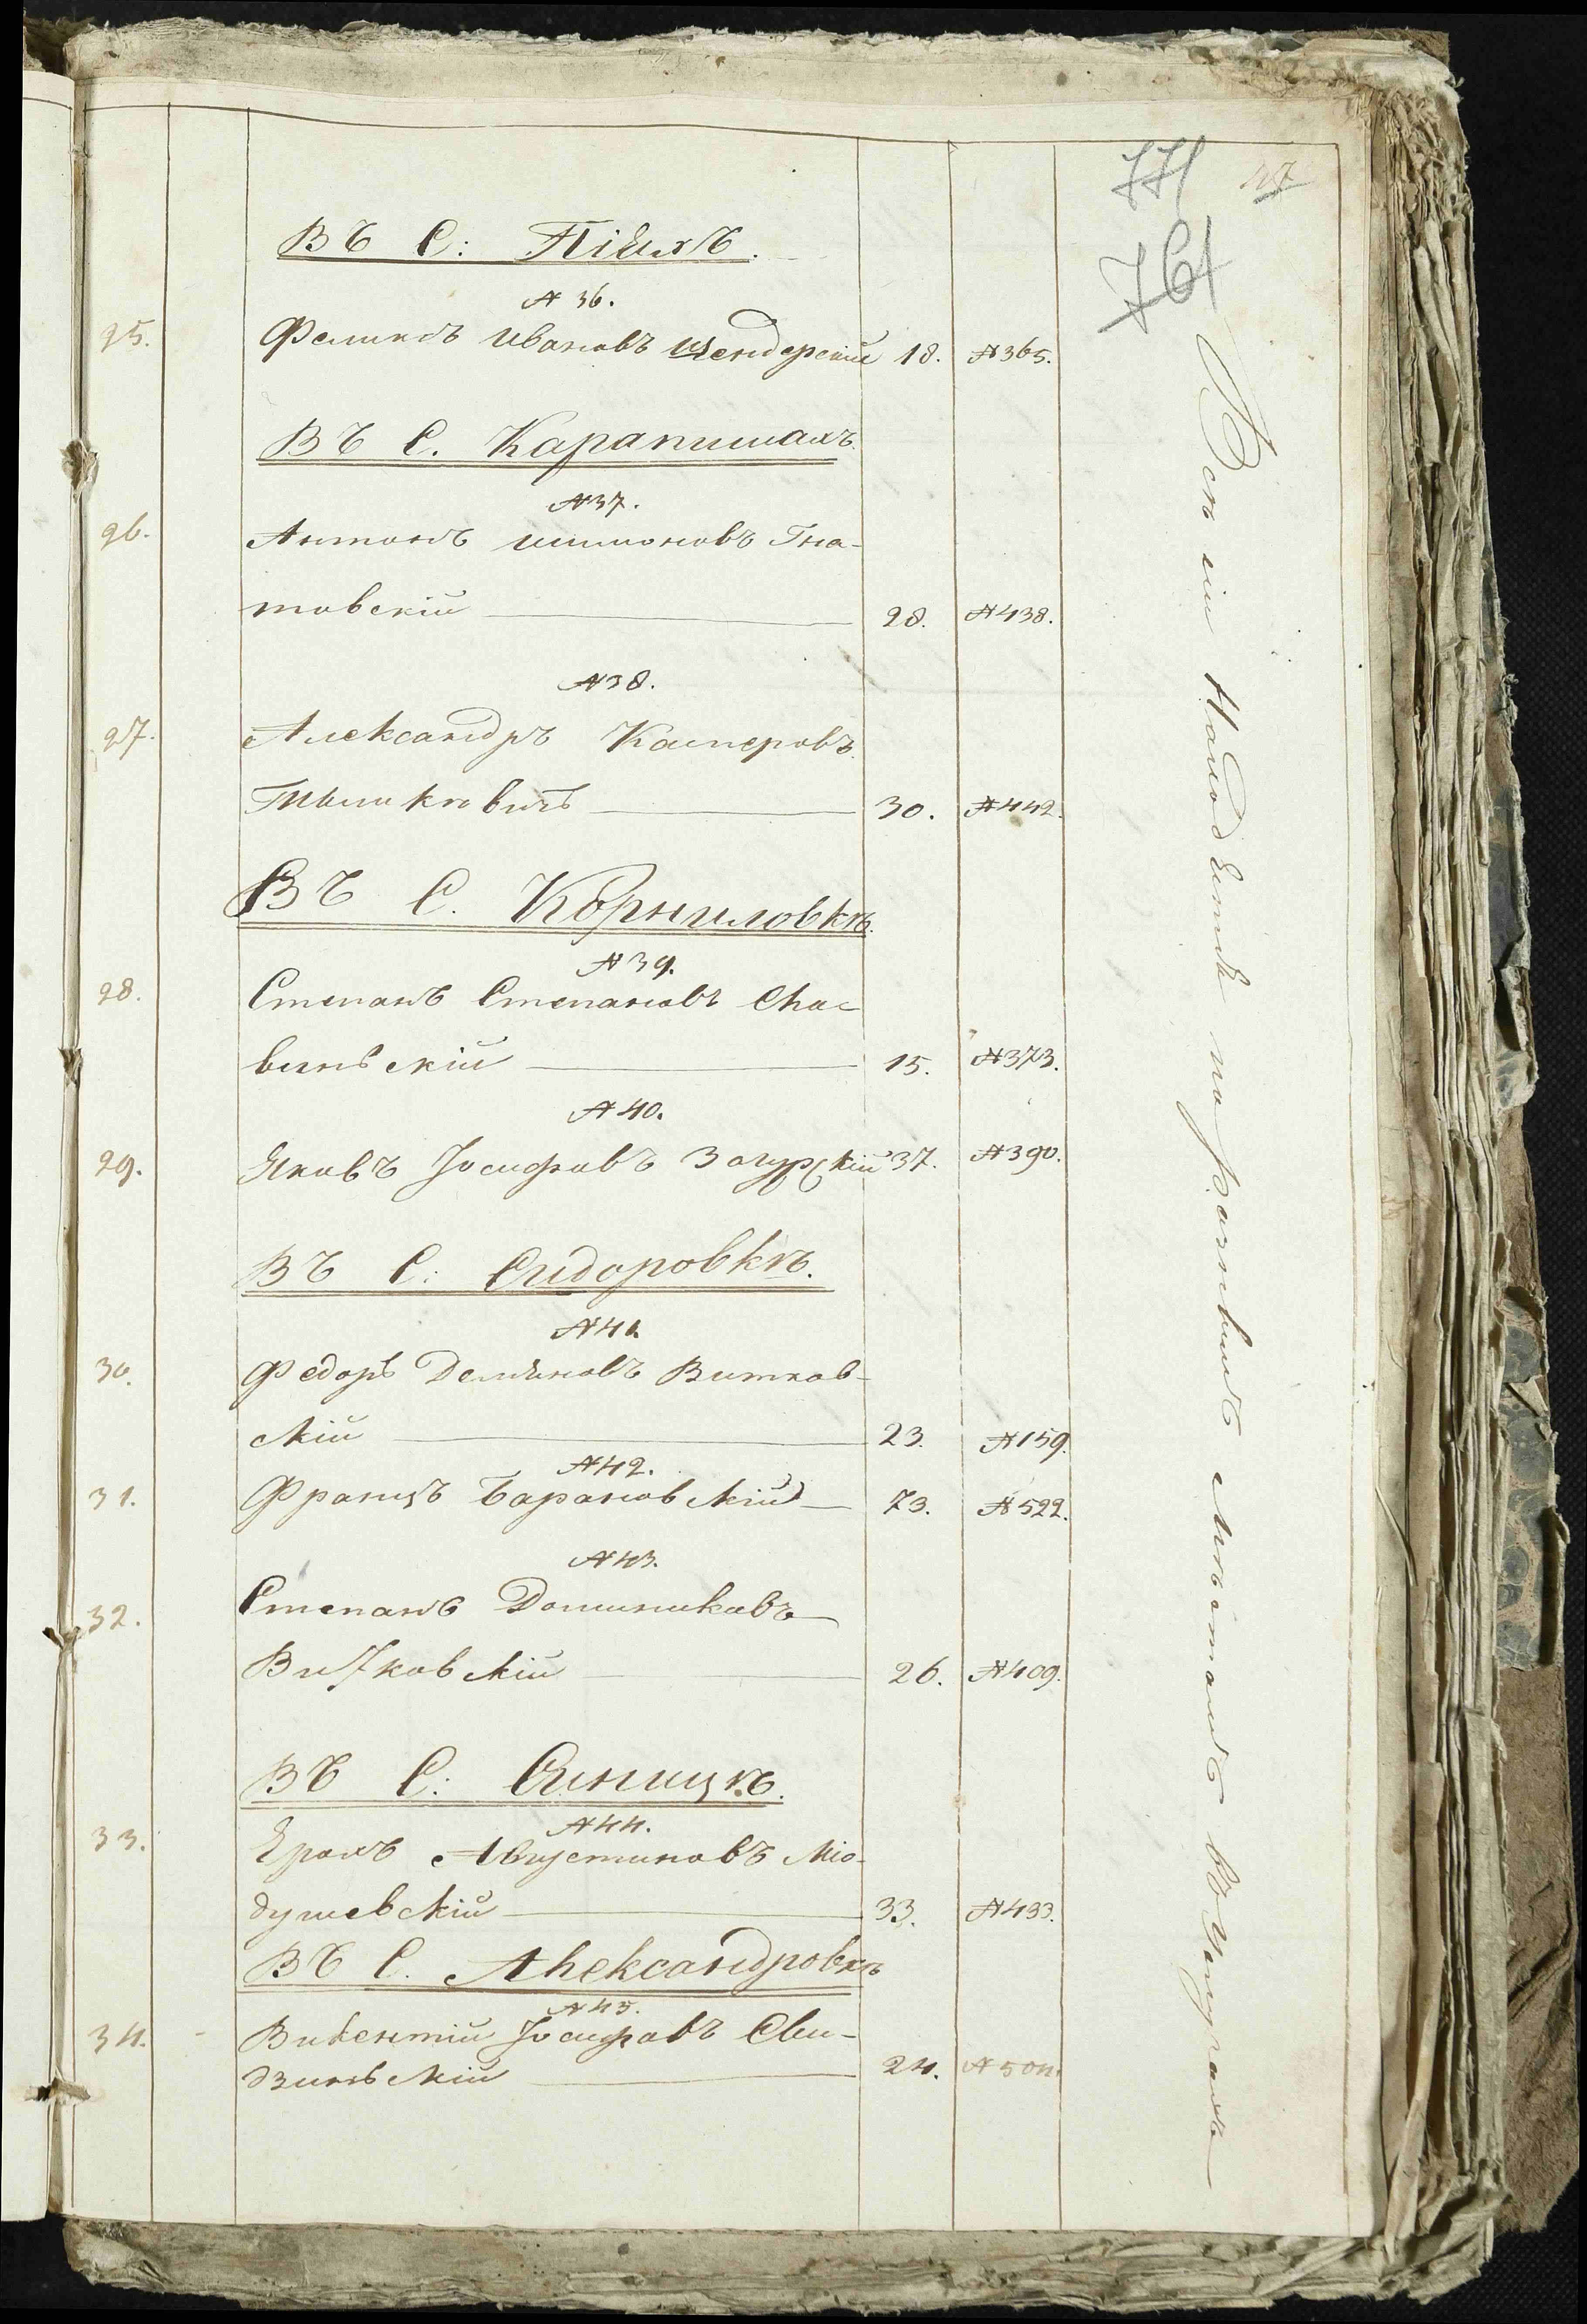 47
771
761
Въ С: Піяхъ.
№ 36.
25. Феликсъ Ивановъ Цендерскій 18. №365.
Въ С. Карапишахъ.
№37.
26. Антонъ Шимоновъ Гна-
товскій 28. №438.
№38.
27. Александръ Касперовъ
Тышкевичъ 30. №442.
Въ С. Корниловкѣ.
№39.
28. Степанъ Степановъ Сла-
виньскій 15. №373.
№40.
29. Яковъ Іосифовъ Загурскій 37. №390.
Въ С: Сидоровкѣ.
№41.
30. Федоръ Демьяновъ Витков-
скій 23. №159.
№42.
31. Францъ Барановскій 73. №522.
№43.
32. Степанъ Доминиковъ
Витковскій 26. №409.
Въ С: Синицѣ.
№44.
33. Ерохъ Августиновъ Міо-
душевскій 33. №433.
Въ С. Александровкѣ
№45.
34. Викентій Іосифовъ Сви-
дзиньскій 24. №504.
Всѣ сіи Находятся по разнымъ мѣстамъ въ услугахъ